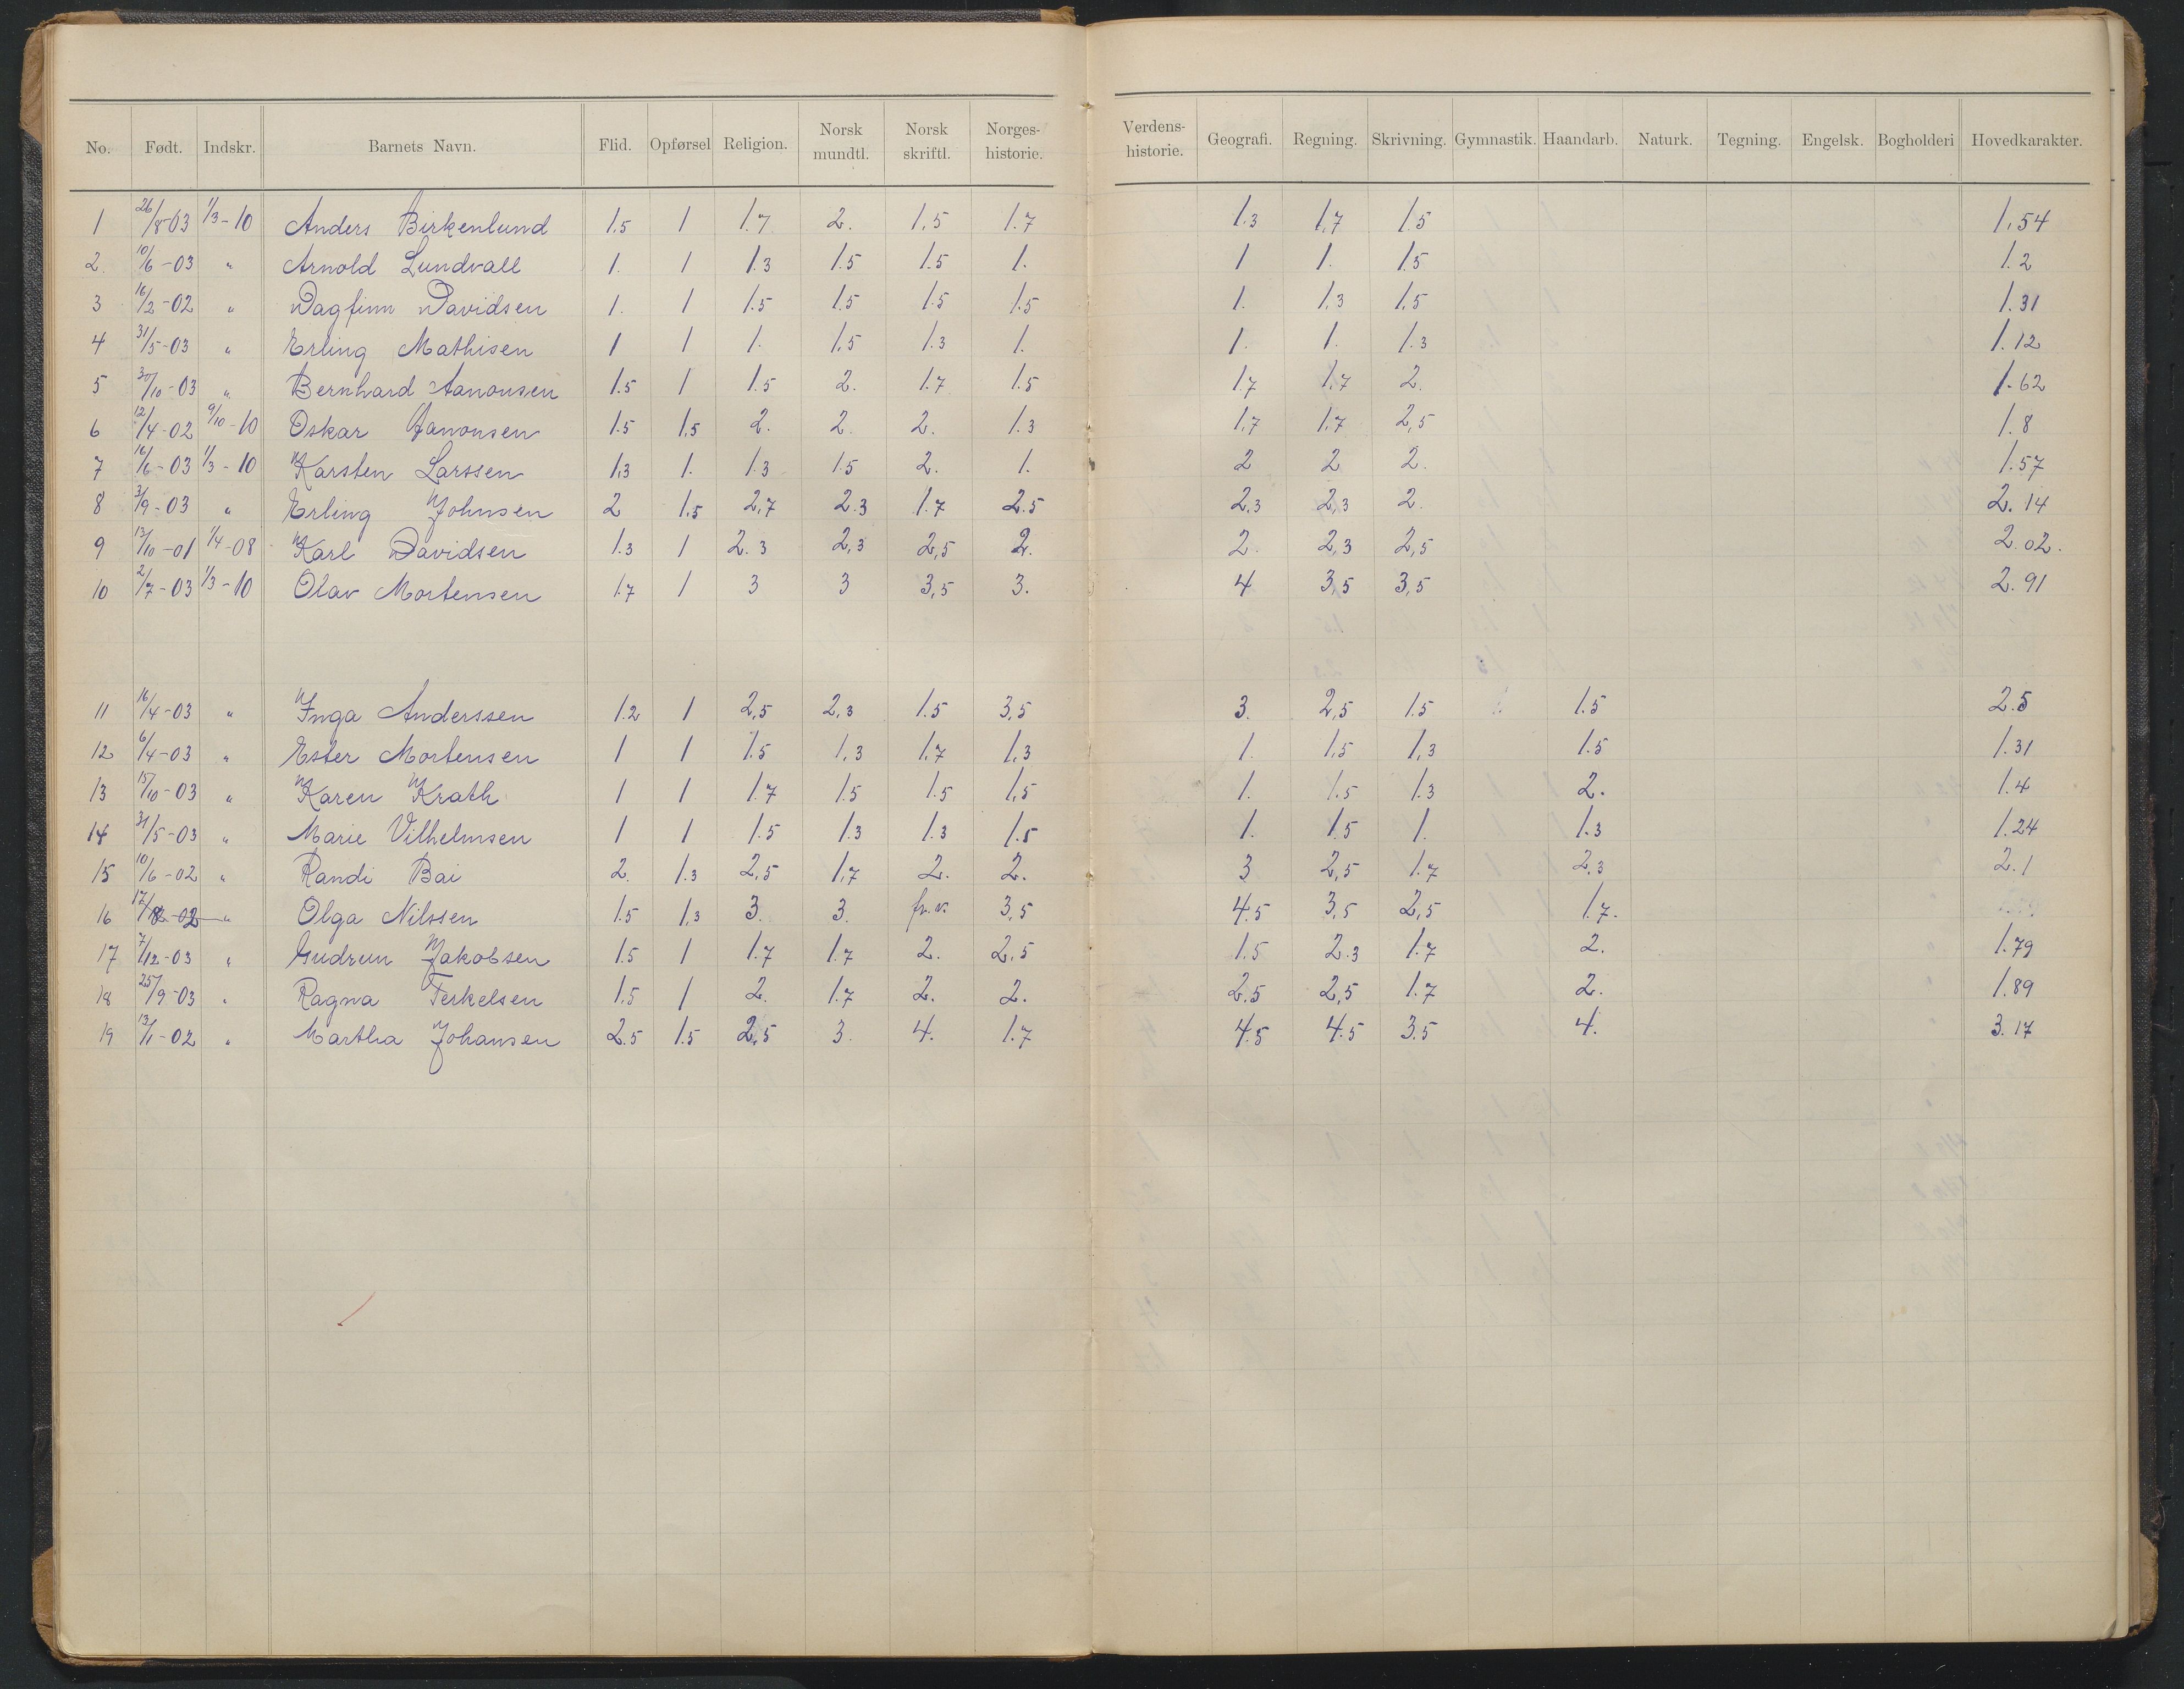 No. Født. Indskr. Barnets Navn. Flid. Opførsel Religion. Norsk mundtl. Norsk skriftl. Norges-historie. Verdens-historie. Geografi. Regning. Skrivning. Gymnastik. Haandarb. Naturk. Tegning. Engelsk. Bogholderi Hovedkarakter.
1 26/8-03 1/3-10 Anders Birkenlund 1.5 1 1.7 2. 1,5 1.7 1.3 1,7 1.5 1,54
2. 10/6-03 " Arnold Lundvall 1. 1 1.3 1.5 1.5 1. 1 1. 1.5 1.2
3 16/2-02 " Dagfinn Davidsen 1. 1 1.5 1.5 1.5 1.5 1. 1,3 1,5 1.31
4 31/5-03 " Erling Mathisen 1 1 1. 1,5 1.3 1. 1. 1. 1.3 1.12
5 30/10-03 " Bernhard Aanonsen 1.5 1 1.5 2. 1.7 1.5 1.7 1.7 2. 1.62
6 12/4-02 9/10-10 Oskar Aanonsen 1.5 1,5 2. 2. 2. 1.3 1,7 1.7 2,5 1.8
7 16/6-03 1/3-10 Karsten Larssen 1,3 1. 1.3 1.5 2. 1. 2 2 2. 1.57
8 3/9-03 " Erling Johnsen 2 1.5 2,7 2.3 1.7 2.5 2,3 2,3 2. 2.14
9 13/10-01 1/4-08 Karl Davidsen 1.3 1 2.3 2,3 2,5 2. 2. 2,3 2,5 2.02.
10 2/7-03 1/3-10 Olav Mortensen 1.7 1 3 3 3,5 3. 4 3,5 3,5 2.91
11 16/4-03 " Inga Anderssen 1.2 1 2,5 2,3 1.5 3,5 3. 2,5 1.5 1.5 2.5
12 6/4-03 " Ester Mortensen 1 1 1.5 1,3 1,7 1,3 1. 1,5 1,3 1.5 1.31
13 15/10-03 " Karen Krath 1 1 1.7 1.5 1.5 1,5 1. 1.5 1.3 2. 1.4
14 31/5-03 " Marie Vilhelmsen 1 1 1.5 1.3 1.3 1.5 1. 1.5 1. 1.3 1.24
15 10/6-02 " Randi Bai 2. 1.3 2,5 1,7 2. 2. 3 2,5 1.7 2,3 2.1
16 17/12-02 " Olga Nilssen 1.5 1,3 3. 3. fr.v. 3,5 4.5 3,5 2,5 1.7.
17 7/12-03 " Gudrun Jakobsen 1.5 1 1.7 1.7 2. 2,5 1.5 2.3 1.7 2. 1.79
18 25/9-03 " Ragna Terkelsen 1.5 1 2. 1.7 2. 2. 2.5 2,5 1.7 2. 1.89
19 13/1-02 " Martha Johansen 2.5 1.5 2,5 3. 4. 1.7 4.5 4.5 3.5 4. 3.17